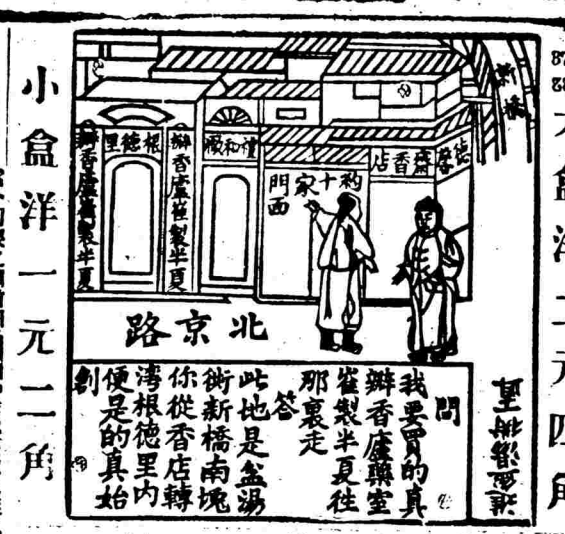 大盒洋二元四角
新橋
德馨齋香店
約十家
門面
根德里
瓣香廬崔製半夏
瓣香廬崔製半夏
北京路
問
我要買的真
瓣香廬藥室
崔製半夏往
那裏走
答
此地是盆湯
衖新橋南塊
你從香店轉
湾根德里内
便是的真始
創
小盒洋一元二角